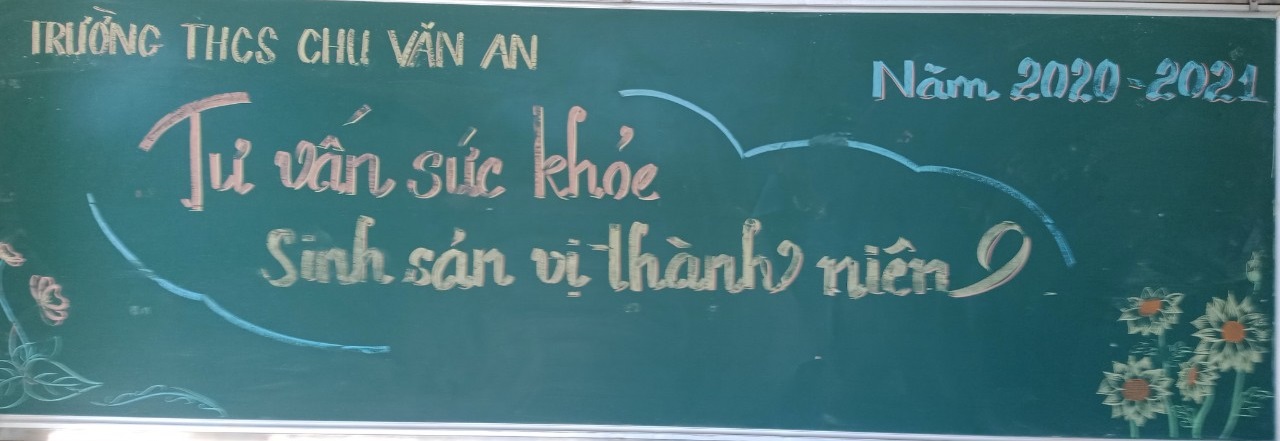 TRƯỜNG THCS CHU VĂN AN
Năm 2020-2021
Tư vấn sức khỏe
Sinh sản vị thành niên